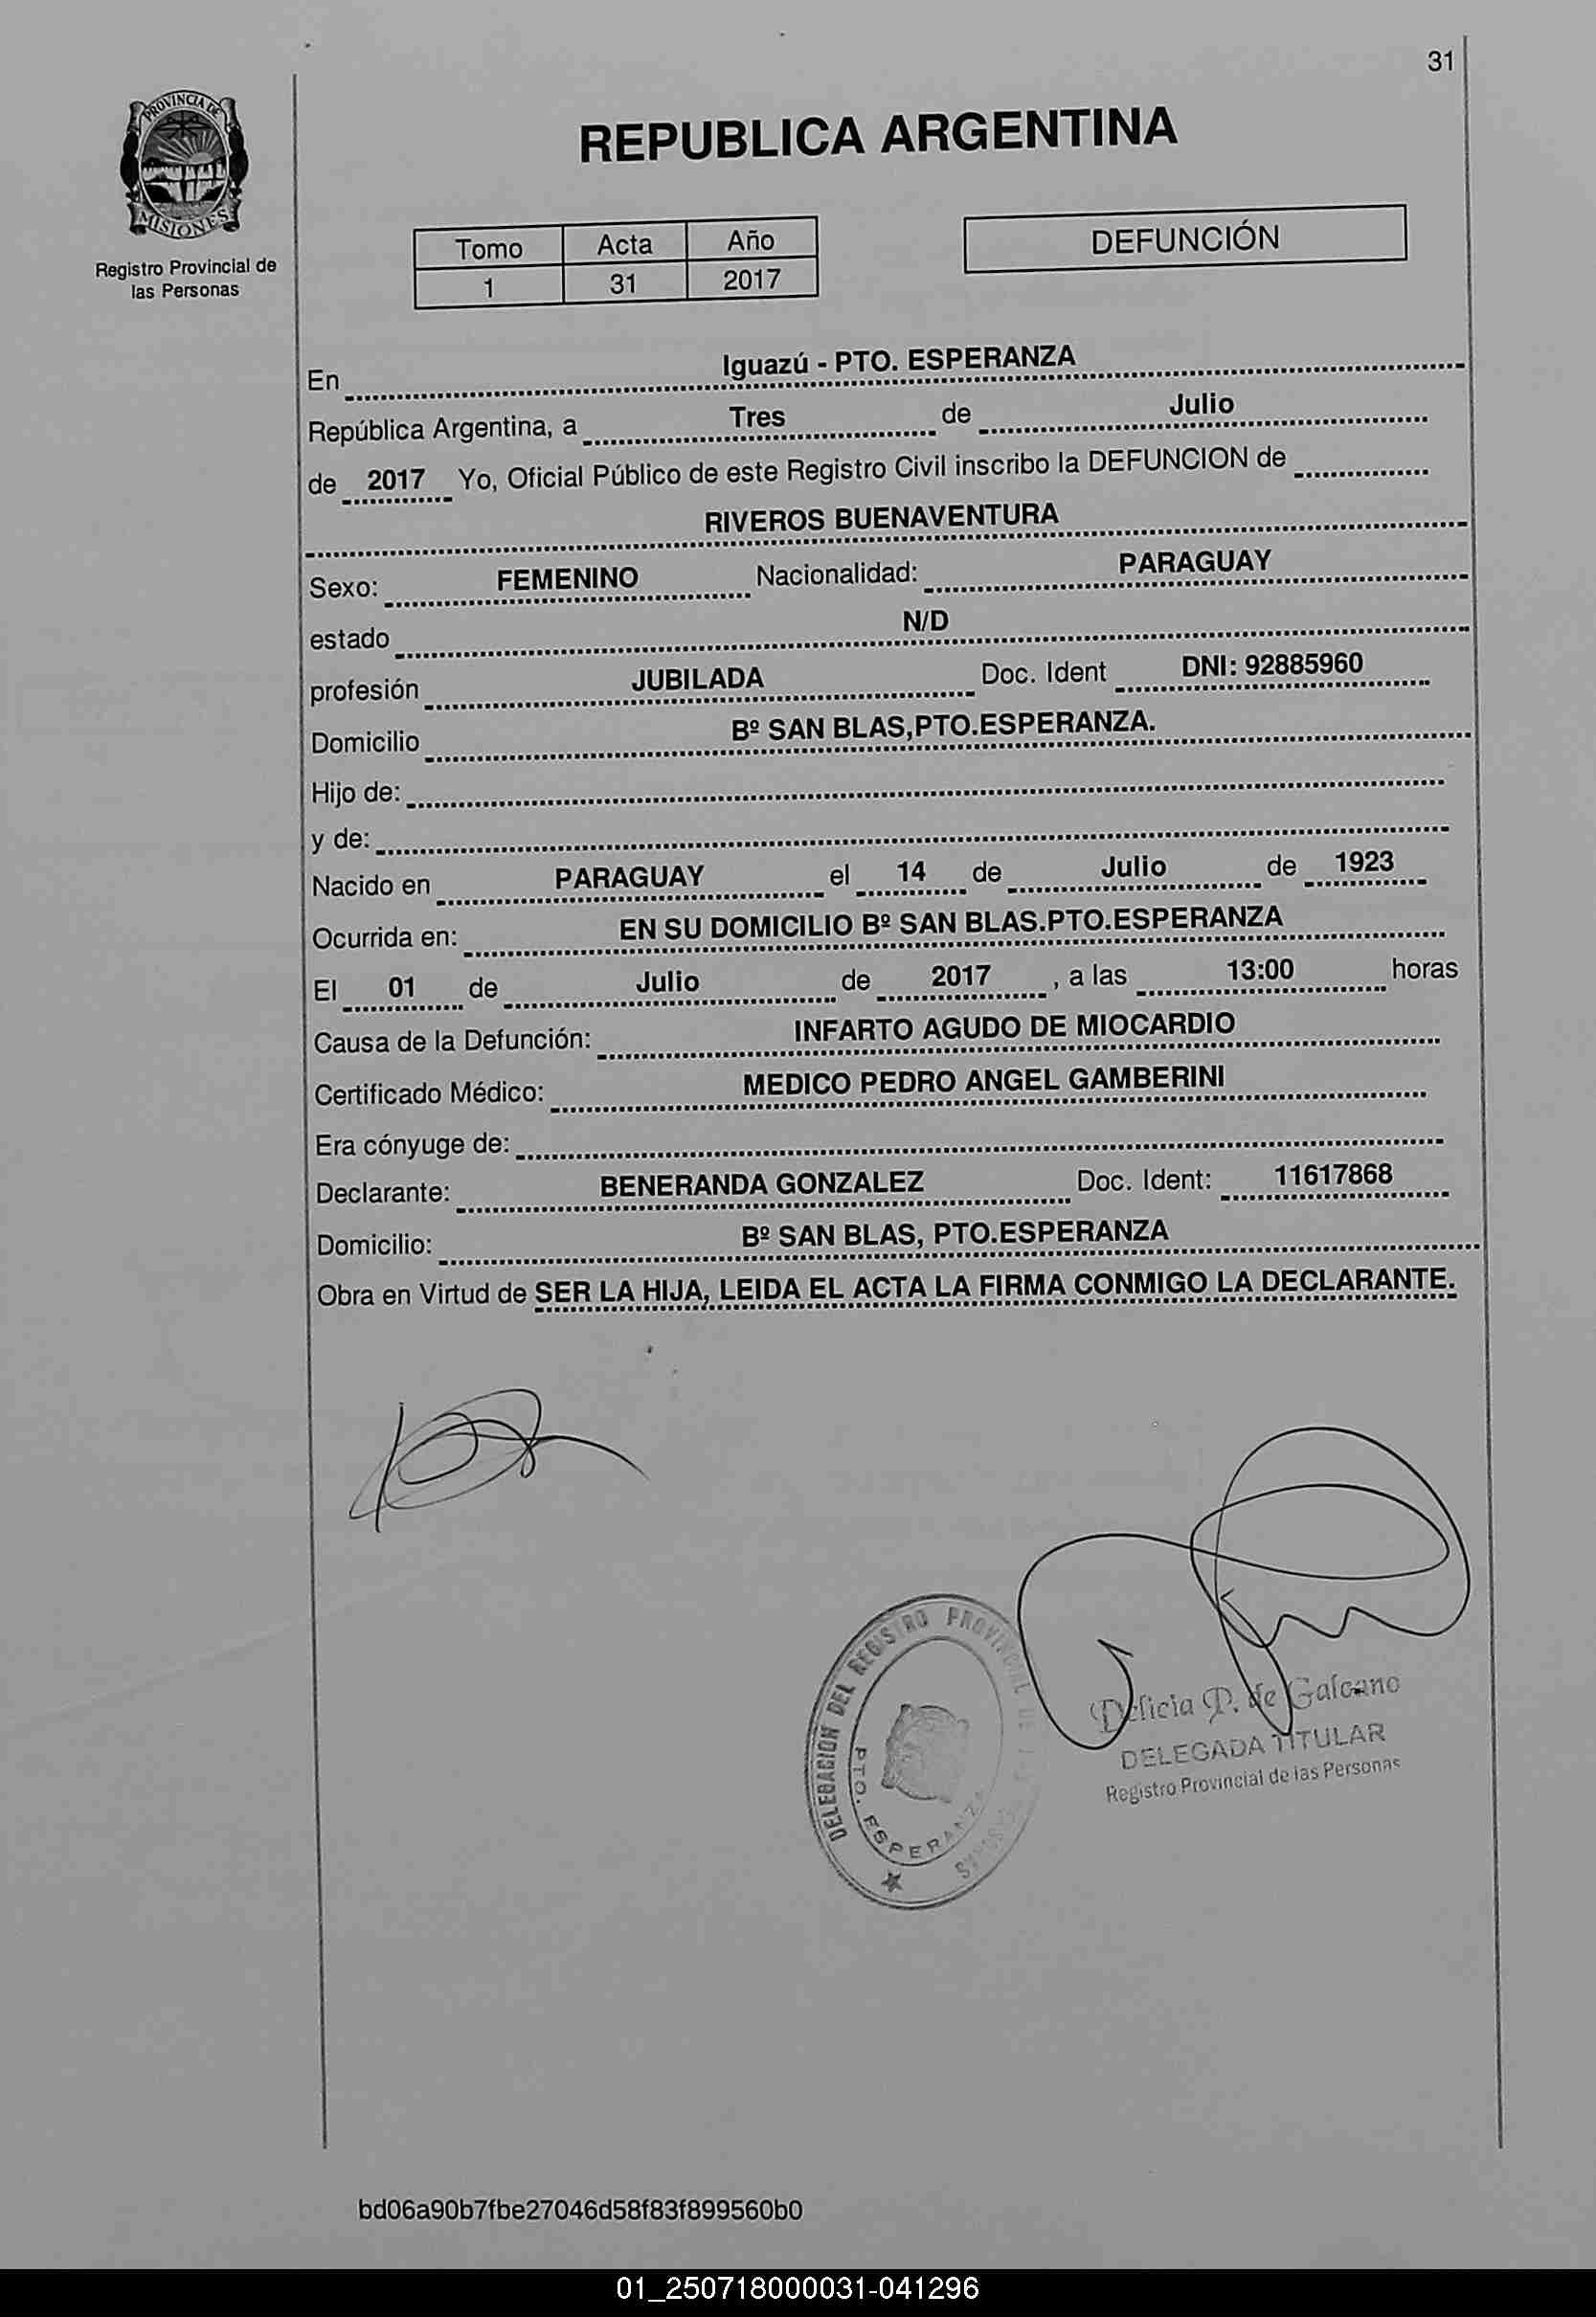 31
PROVINCIA DE
MISIONES
Registro Provincial de
las Personas
REPUBLICA ARGENTINA
Tomo Acta Año
1 31 2017
DEFUNCIÓN
En Iguazú - PTO. ESPERANZA
República Argentina, a Tres de Julio
de 2017 Yo, Oficial Público de este Registro Civil inscribo la DEFUNCION de
RIVEROS BUENAVENTURA
Sexo: FEMENINO Nacionalidad: PARAGUAY
estado N/D
profesión JUBILADA Doc. Ident DNI: 92885960
Domicilio Bº SAN BLAS,PTO.ESPERANZA.
Hijo de:
y de:
Nacido en PARAGUAY el 14 de Julio de 1923
Ocurrida en: EN SU DOMICILIO Bº SAN BLAS.PTO.ESPERANZA
El 01 de Julio de 2017 , a las 13:00 horas
Causa de la Defunción: INFARTO AGUDO DE MIOCARDIO
Certificado Médico: MEDICO PEDRO ANGEL GAMBERINI
Era cónyuge de:
Declarante: BENERANDA GONZALEZ Doc. Ident: 11617868
Domicilio: Bº SAN BLAS, PTO.ESPERANZA
Obra en Virtud de SER LA HIJA, LEIDA EL ACTA LA FIRMA CONMIGO LA DECLARANTE.
DELEGACION DEL REGISTRO PROVINCIAL DE
PTO. ESPERANZA
Delicia P. de Galeano
DELEGADA TITULAR
Registro Provincial de las Personas
bd06a90b7fbe27046d58f83f899560b0
01_250718000031-041296